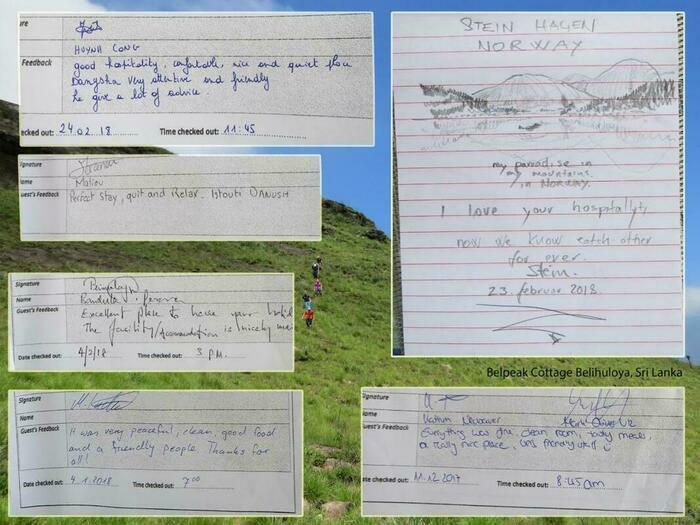 ure
HUYNH CONG
Feedback
good hospitality, comfortable, nice and quiet place
Dangsha very attentive and friendly
he give a lot of advice.
ecked out: 24.02.18 Time checked out: 11:45
Signature
ame
Malieu
uest's Feedback
Perfect stay, quit and Relax. DANUSH
Signature
Name
Guest's Feedback
Excellent place to have your
The facility/Accommodation is nicely
Date checked out: 4/2/18 Time checked out: 3 P.M.
Signature
Name
Guest's Feedback
It was very peaceful, clean, good food
and a friendly people. Thanks for
all!
Date checked out: 4.1.2018 Time checked out: 7 00
STEIN HAGEN
NORWAY
my parradise in
my mountains.
in NORWAY.
I love your hospallyt,
now we know eatch other
for ever.
Stein.
23. februar 2018.
Belpeak Cottage Belihuloya, Sri Lanka
ignature
Name
uest's Feedback
Everything was fine, clean room, tasty meals,
a really nice place, and friendly staff
ate checked out: 11.12.2017 Time checked out: 8:45am